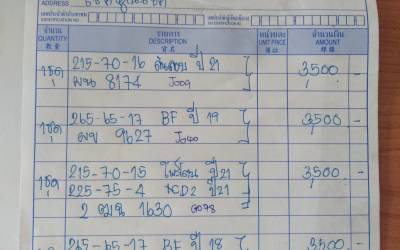 ADDRESS
เลขประจำตัวประชาชน
IDENTIFICATION NO.
เลขประจำตัวผู้เสียภาษี
จำนวน
QUANTITY
數量
รายการ
DESCRIPTION
貨名
หน่วยละ
UNIT PRICE
單價
จำนวนเงิน
AMOUNT
銀碼
1ชุด 215-70-16 ปี 21 3500 -
8174 J009
1ชุด 265-65-17 BF ปี 19 3500 -
ผข 9627 J040
1ชุด 215-70-15 ปี 21 3500 -
225-75-4 KD2 ปี 21
2 ฒฆ 1630 G078
265-65-17 BF ปี 18 3500 -